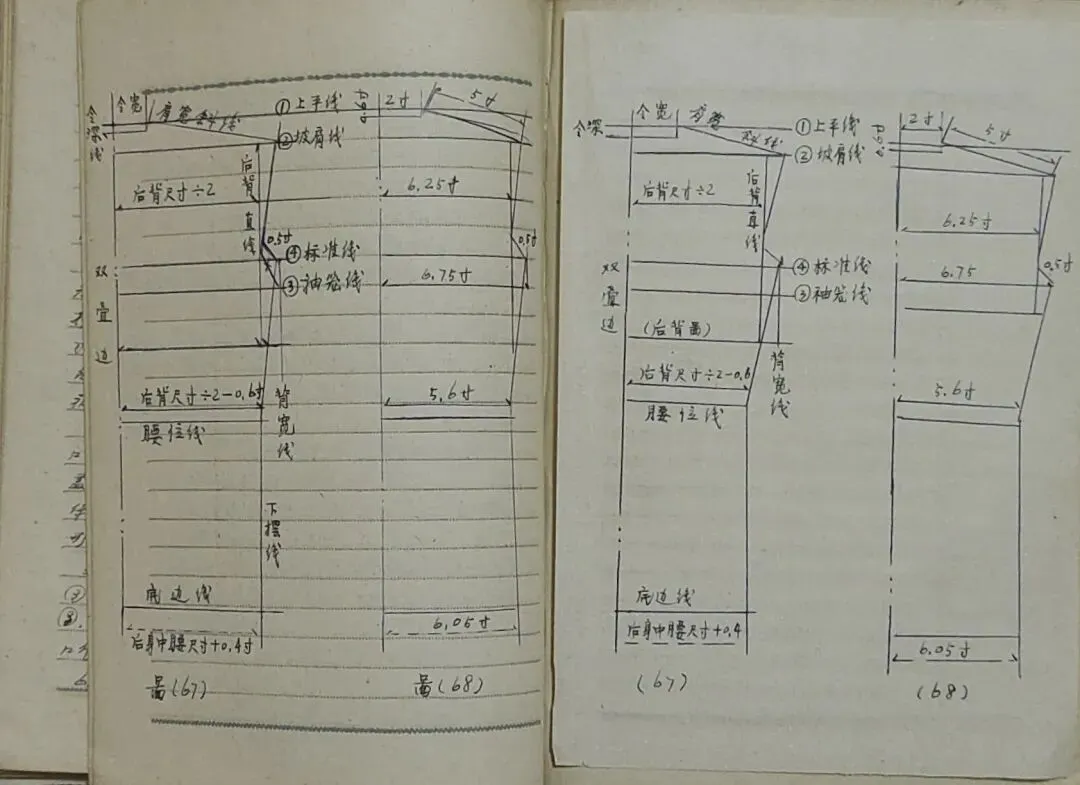 令宽
①上平线
2寸
5寸
令深线
②坡肩线
后背直线
后背尺寸÷2
6.25寸
0.5寸
④标准线
0.5寸
③袖笼线
6.75寸
双叠边
后背尺寸÷2-0.6寸
5.6寸
腰位线
背宽线
下摆线
底边线
6.05寸
后身中腰尺寸+0.4寸
啚(67)
啚(68)
令宽
①上平线
2寸
5寸
令深
②坡肩线
后背直线
后背尺寸÷2
6.25寸
④标准线
6.75
0.5寸
③袖笼线
双叠边
(后背啚)
后背尺寸÷2-0.6
背宽线
5.6寸
腰位线
底边线
后身中腰尺寸+0.4
6.05寸
(67)
(68)